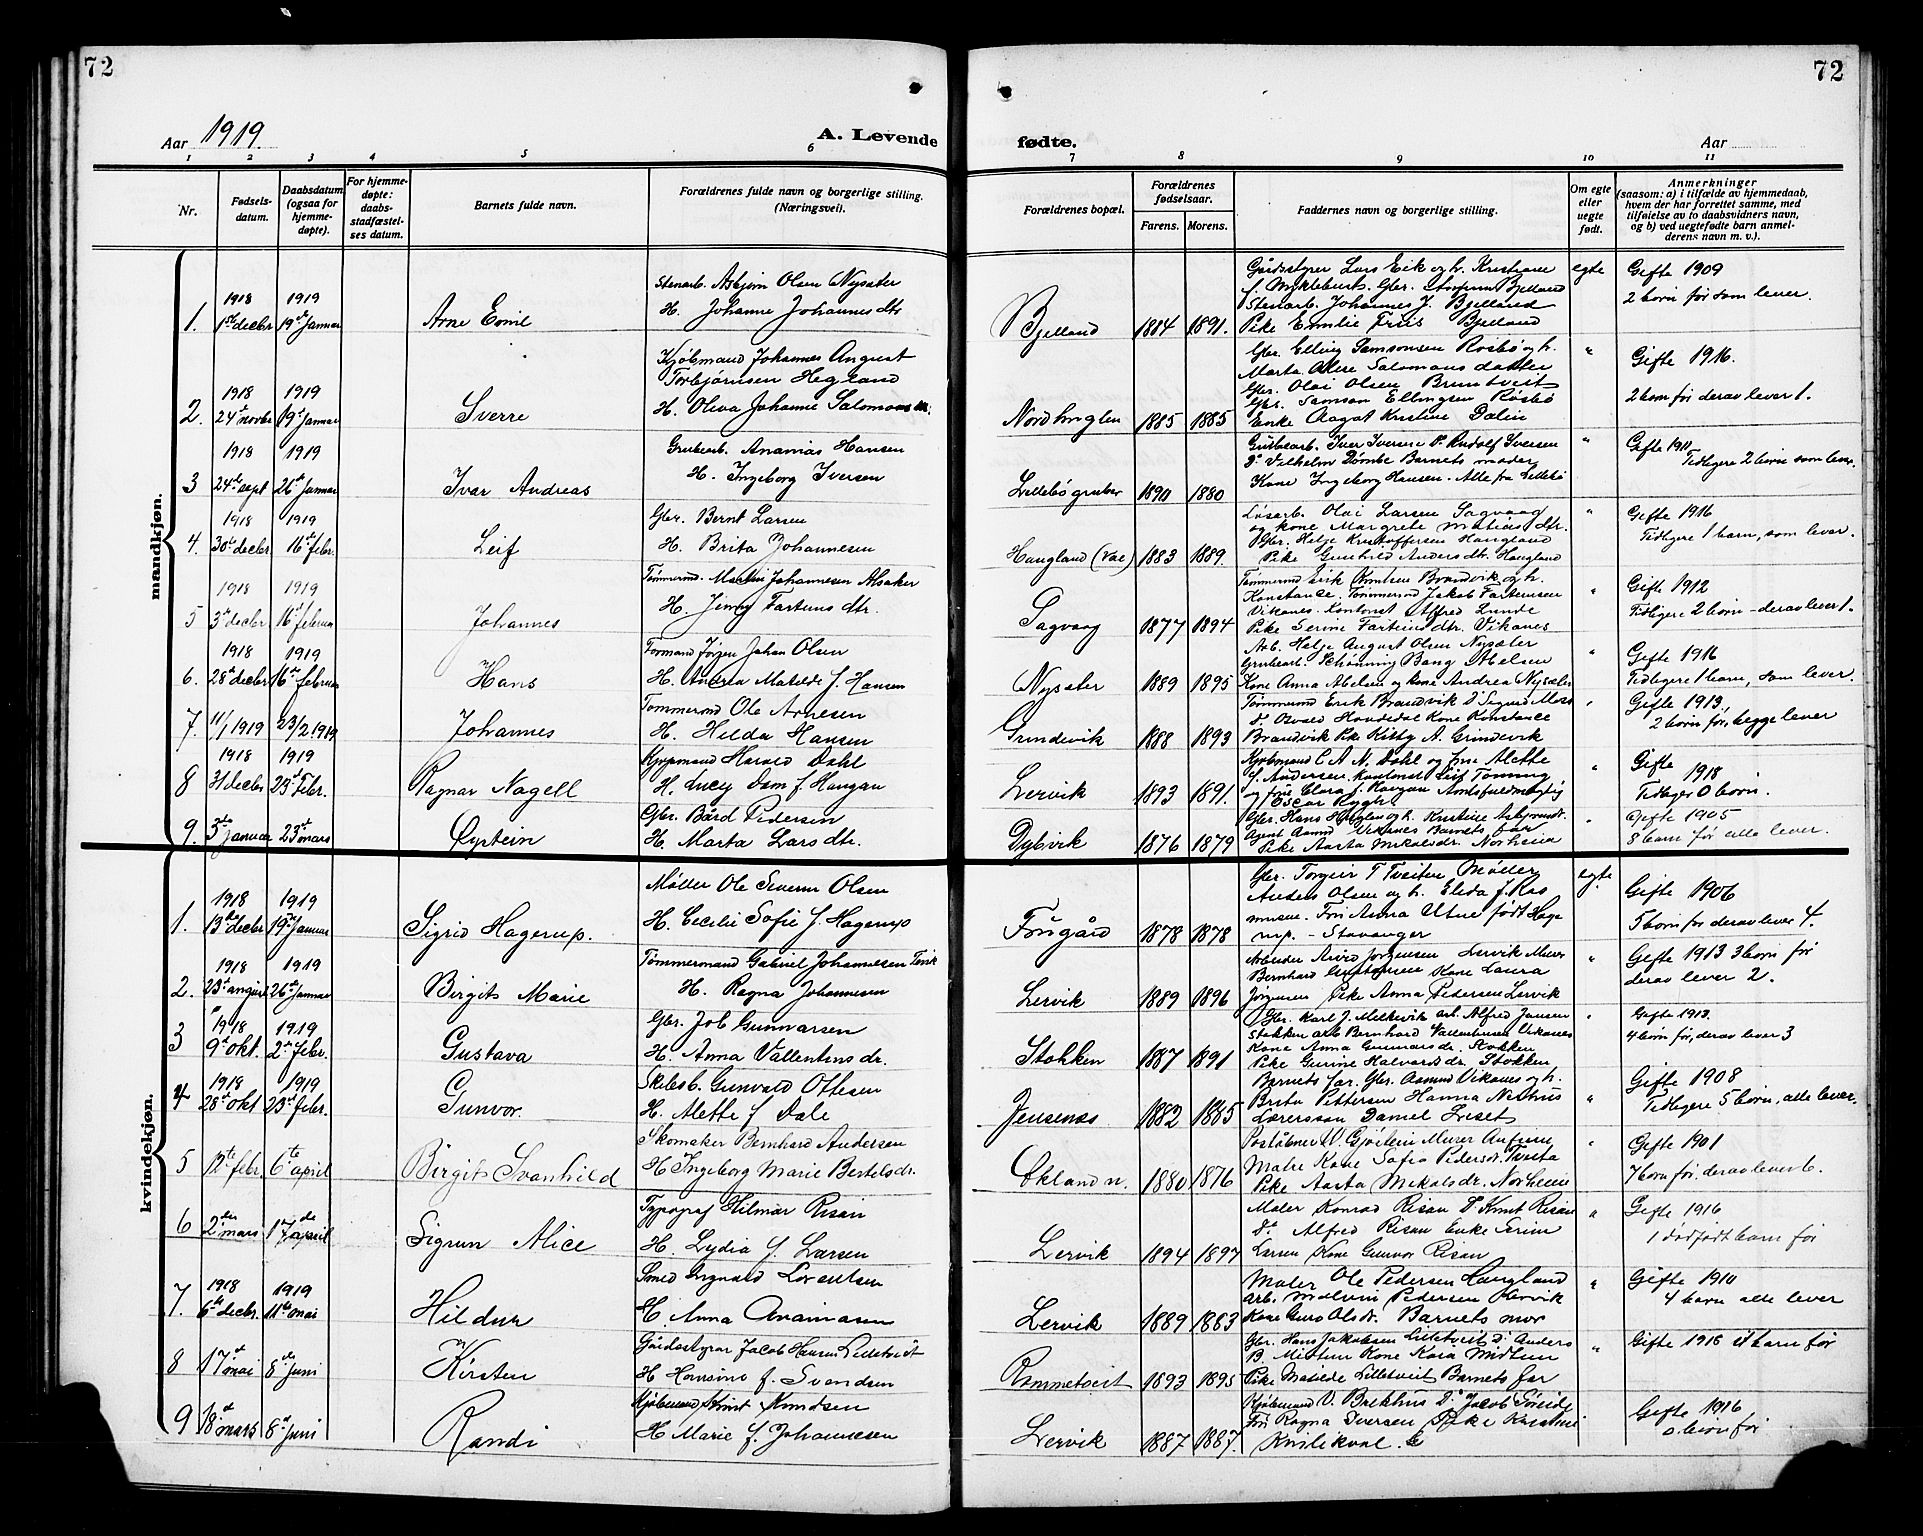 72
72
Aar 1919.
A. Levende
fødte.
Aar
1 2 3 4 5 6 7 8 9 10 11
Nr.
Fødsels-
datum.
Daabsdatum
(ogsaa for
hjemme-
døpte).
For hjemme-
døpte:
daabs-
stadfæstel-
ses datum.
Barnets fulde navn.
Forældrenes fulde navn og borgerlige stilling.
(Næringsvei).
Forældrenes bopæl.
Forældrenes
fødselsaar.
Farens. Morens.
Faddernes navn og borgerlige stilling.
Om egte
eller
uegte
født.
Anmerkninger
(saasom: a) i tilfælde av hjemmedaab,
hvem der har forrettet samme, med
tilføielse av to daabsvidners navn,
og b) ved uegtefødte barn anmel-
derens navn m. v.).
mandkjøn.
1. 1918 1ste decbr 1919 19de Januar Arne Emil
Stenarb. Asbjørn Olsen Nysæter
H. Johanne Johannesdtr
Bjelland 1884 1891.
Gårdsstyrer Lars Eik og h. Kristiane
f. Myklebust. Gbr. Bjelland
Stenarb. Johannes J. Bjelland
Pike Emilie Friis Bjelland
egte
Gifte 1909
2 børn før som lever.
2. 1918 24de novbr 1919 19de Januar Sverre
Kjøbmand Johannes August
Torbjørnsen Hegland
H. Oliva Johanne Salomons
Nordhuglen 1885 1885
Gbr. Elling Samsonsen Røsbø og h.
Marta Oline Salomons datter
Gbr. Olai Olsen Bruntveit
Gbr. Samson Ellingsen Røsbø
Enke Aagot Kristine Dalin
"
Gifte 1916.
2 børn før derav lever 1.
3 1918 24de sept 1919 26de Januar Ivar Andreas
Grubearb. Ananias Hansen
H. Ingeborg Iversen
Lillebø gruber 1890 1880
Grubearb. Iver Iversen Do Rudolf Iversen
Do Vilhelm Dømbe Barnets moder
Kone Ingeborg Hansen. Alle fra Lillebø
"
Gifte 1911
Tidligere 2 børn som lever.
4. 1918 30te decbr 1919 16de febr. Leif
Gbr. Bernt Larsen
H. Brita Johannesen
Haugland (Vae) 1883 1889.
Løsarb. Olai Larsen Sagvaag
og kone Margrete Matias dtr.
Gbr. Helje Kristoffersen Haugland
Pike Gunhild Anders dtr. Haugland
"
Gifte 1916
Tidligere 1 barn, som lever.
5 1918 3de decbr 1919 16de februar Johannes
Tømmermd. Martin Johannesen Alsaker
H. Jenny Farteins dtr.
Sagvaag 1877 1894
Tømmermd Erik Knutsen Brandvik og h.
Konstance. Tømmermd Jakob Farteinsen
Vikanes. Kontorist Alfred Lunde
Pike Serine Farteins dtr. Vikanes
"
Gifte 1912
Tidligere 2 børn - derav lever 1.
6. 1918 28de decbr 1919 16de februar Hans
Formand Jørgen Johan Olsen
H. Andrea Matilde f. Hansen
Nysæter 1889 1895
Arb. Helje August Olsen Nysæter
Grubearb. Schønning Bang Abelsen
Kone Anna Abelsen og kone Andrea Nysæter
"
Gifte 1916
Tidligere 1 barn, som lever.
7. 11/1 1919 23/2 1919 Johannes
Tømmermd Ole Arnesen
H. Hilda Hansen
Grindevik 1888 1893
Tømmermd Erik Brandvik Do Sigurd Moss
Do Hovdedal Kone Konstance
Brandvik Pike Kitty A. Grindevik
"
Gifte 1913
2 børn før, begge lever
8 1918 31 decbr 1919 23de Febr. Ragnar Nagell
Kjøpmand Harald Dahl
H. Lucy Dam f. Haugan
Lervik 1893 1891.
Kjøbmand C A N. Dahl og frue Alette
f. Andersen. Kontorist Leif Tønning
og frue Clara f. Haugan Amtsfuldmægtig
Oscar Rygh
"
Gifte 1918
Tidligere 0 børn.
9. 5te januar 23de mars Øystein
Gbr. Bård Pedersen
H. Marta Lars dtr.
Dybvik 1876 1879
Gbr. Hans Huglen og h. Kristine
Agent Asmd Vikanes Barnets far
Pike Aasta Mikalsdr. Norheim
"
Gifte 1905
8 barn før alle lever.
kvindekjøn.
1. 1918 13de decbr 1919 19de Januar Sigrid Hagerup.
Møller Ole Severin Olsen
H. Cecilie Sofie f. Hagerup
Frugård 1878 1878
Gbr. Torgeir T Tveiten Møller
Anders Olsen og h. Elida f. Ras
musen. Fru Anna Utne født Hage
rup. - Stavanger
egte.
Gifte 1906
5 børn før derav lever 4.
2. 1918 23de august 1919 26de Januar Birgit Marie
Tømmermand Gabriel Johannesen
H. Ragna Johannesen
Lervik 1889 1896
Arbeider Arvid Jørgensen Lervik Murer
Bernhard Kone Laura
Jørgensen Pike Anna Pedersen Lervik
"
Gifte 1913 3 børn før
derav lever 2.
3 1918 9de okt. 1919 2de febr. Gustava
Gbr. Job Gunnarsen
H. Anna Vallentinsdr.
Stokken 1887 1891
Gbr. Karl J. Melkevik arb. Alfred Jansen
Stokken arb Bernhard Vallentinsen Vikanes
Kone Anna Gunnarsdr. Stokken
Pike Gurine Halvardsdr. Stokken
"
Gifte 1913.
4 børn før, derav lever 3
4 1918 28de okt 1919 23de febr. Gunvor
Skibsb. Gunvald Ottesen
H. Alette f Dale
Jensenes 1882 1885
Barnets far. Gbr. Asmund Vikanes og h.
Brita Pettersen Hanna Nesthus
Lærerssøn Daniel Liset
"
Gifte 1908
Tidligere 5 børn, alle lever.
5 12te febr. 6te april Birgit Svanhild
Skomaker Bernhard Andersen
H Ingeborg Marie Bertelsdr.
Økland n. 1880 1876
Postaabner N. Gjøstein Murer
Matre Kone Sofia Pedersdr. Tveita
Pike Aasta Mikalsdr. Norheim
"
Gifte 1901
7 børn før. derav lever 6.
6 2den mars 17de april Sigrun Alice
Typograf Hilmar Risan
H. Lydia f. Larsen
Lervik 1894 1897
Maler Konrad Risan Do Knut Risan
Do Alfred Risan Enke Serine
Larsen Kone Gunvor Risan
"
Gifte 1916
1 dødfødt barn før
7. 1918 6te decbr. 1919 11te mai Hildur
Smed Ingvald Lorentsen
H. Anna
Lervik 1889 1883
Maler Ole Pedersen Haugland
Arb. Melvin Pedersen Lervik
Kone Guro Olsdr. Barnets mor
"
Gifte 1910
4 børn alle lever
8 17de mai 8de Juni Kirsten
Gårdsstyrer Jacob Hansen Lilletveit
H Hansine f. Svendsen
Rommetveit 1893 1895
Gbr. Hans Jakobsen Lilletveit Do Anders
B. Midtun Kone Kara Midtun
Pike Matilde Lilletveit Barnets far
"
Gifte 1916 1 barn før
9 18de mars 8de Juni Randi
Kjøbmand Knut Knudsen
H Marie f. Johannesen
Lervik 1887 1887.
Kjøbmand O. Brekhus Do Jacob Søreide
Fru Ragna Iversen Pike Kristine
Gifte 1916
0 børn før